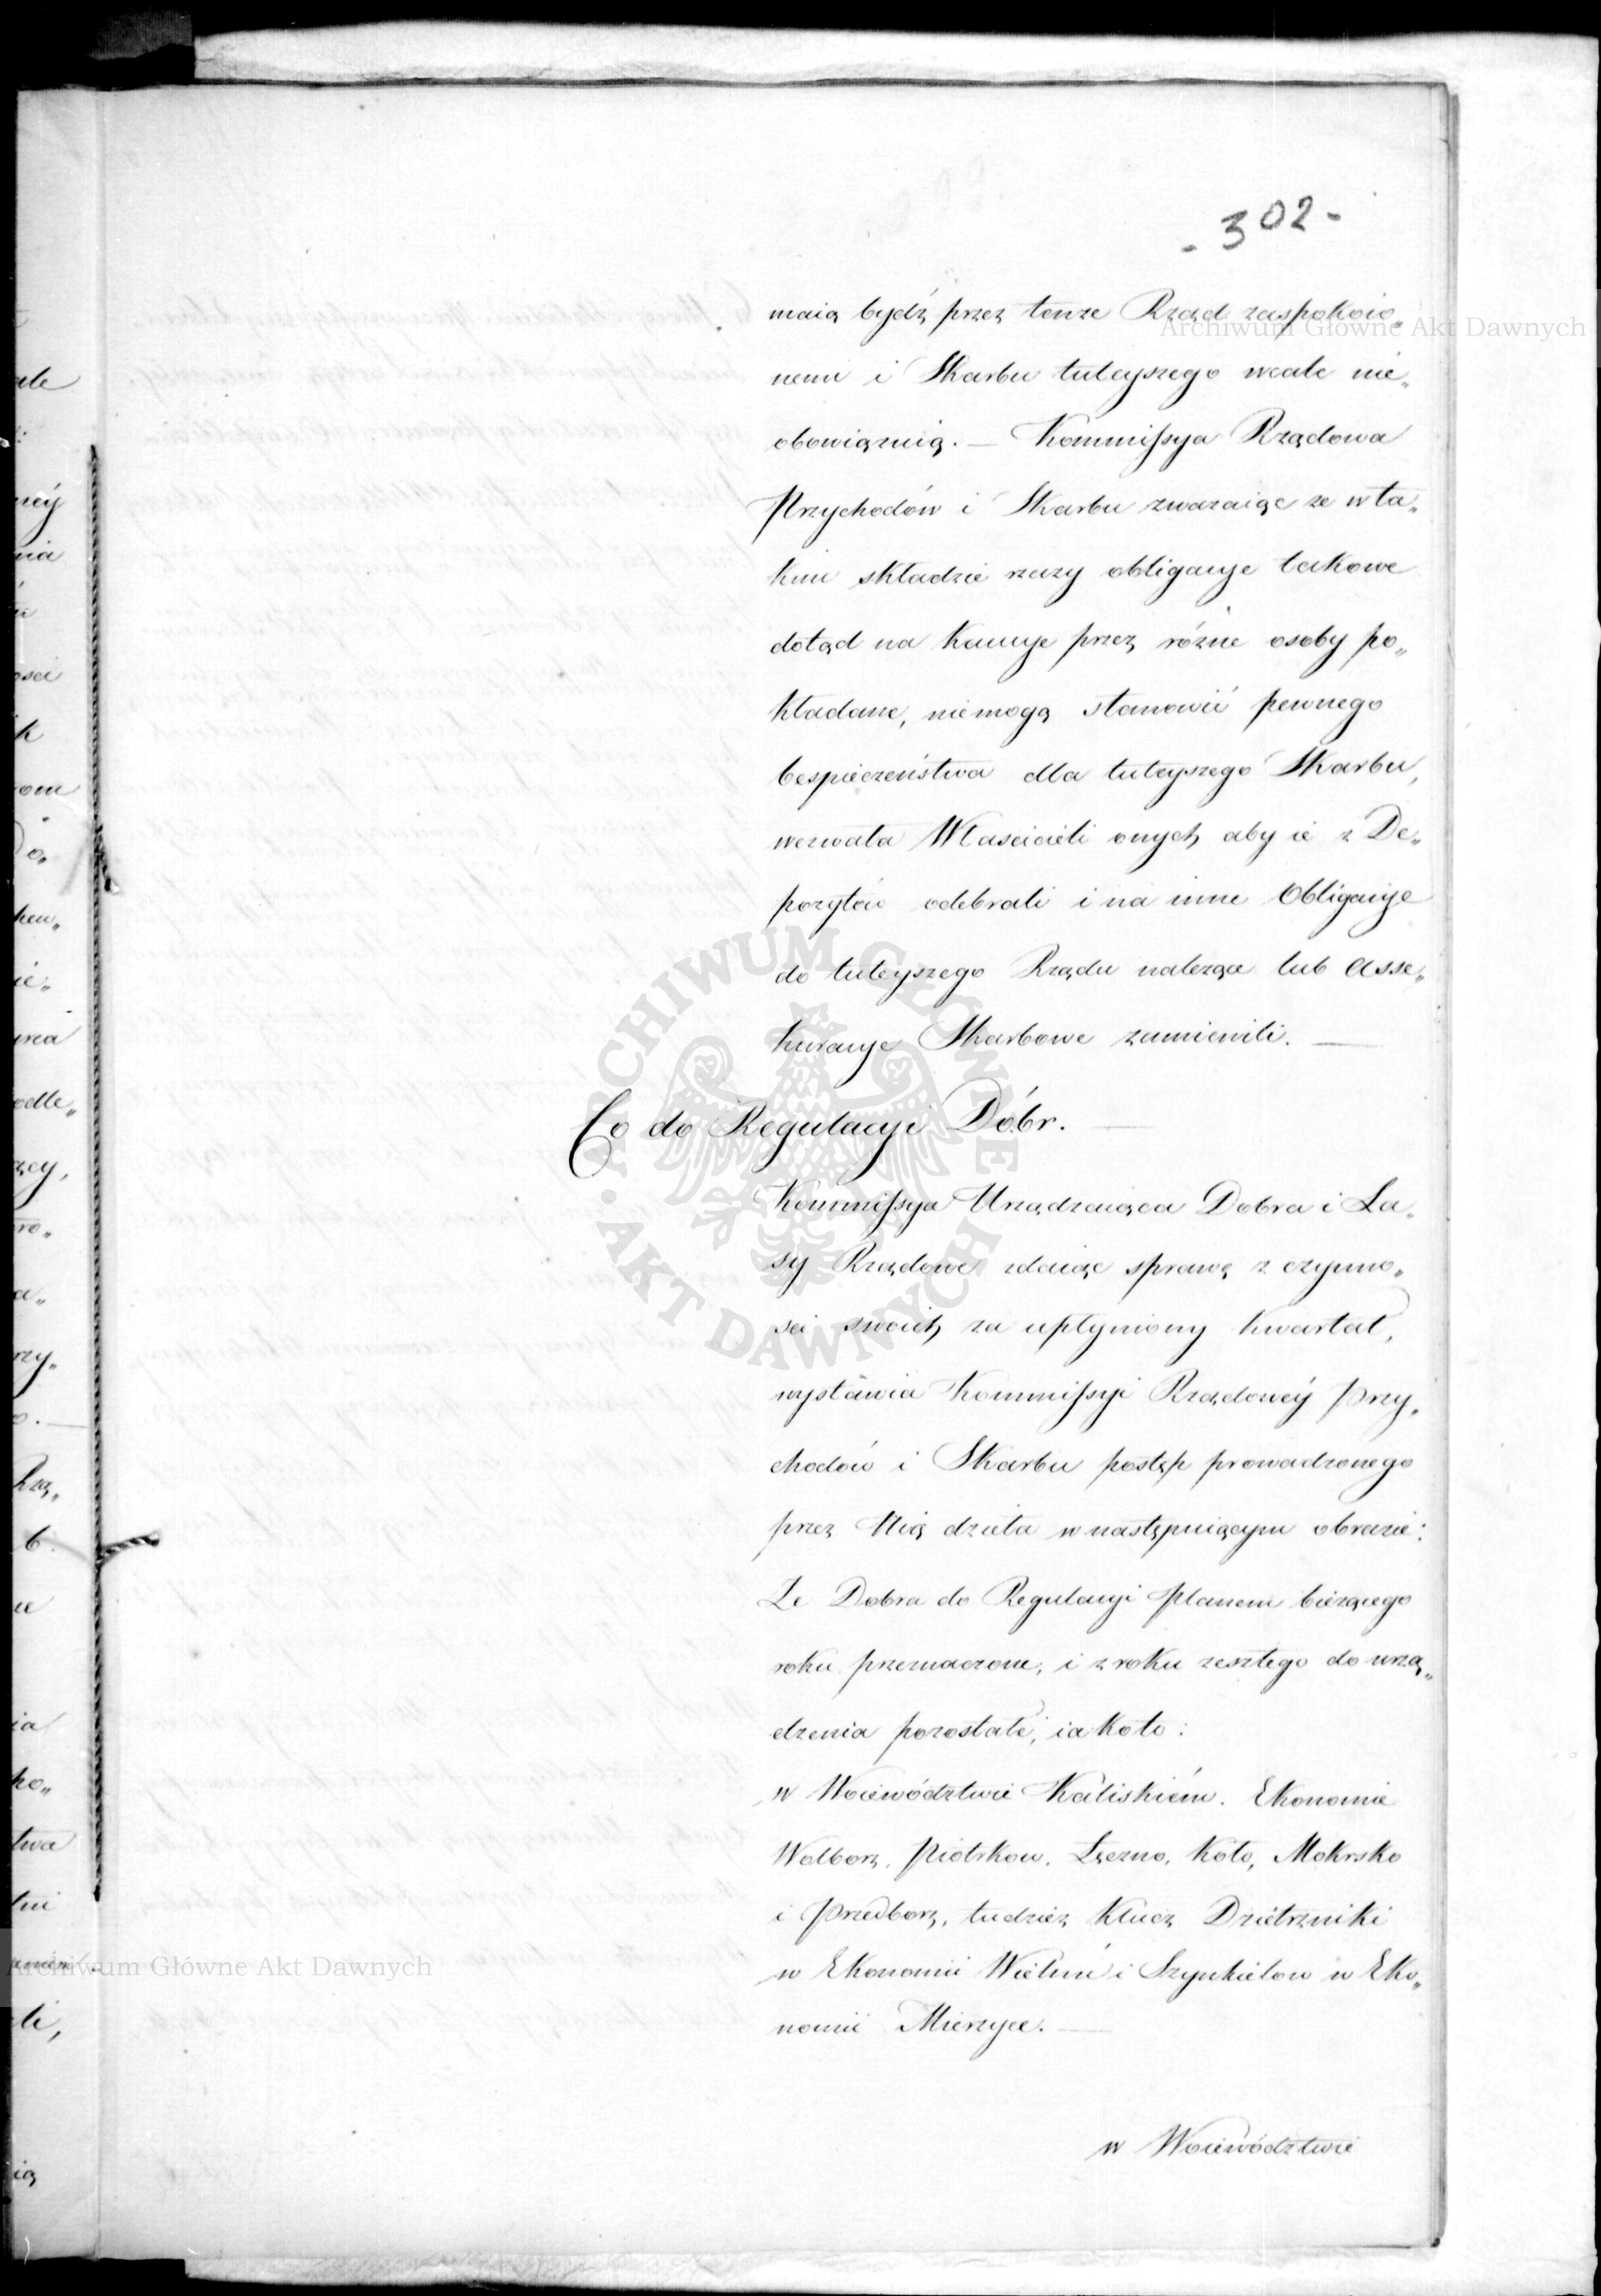 - 302 -
maią bydź przez tenze Rząd zaspokoio„
nemi i Skarbu tuteyszego wcale nie„
obowiązuią. — Kommissya Rządowa
Przychodów i Skarbu zwazaiąc ze w ta„
kim składzie rzeczy obligacye takowe
dotąd na Kaucye przez różne osoby po„
kładane, niemogą stanowić pewnego
bespieczeństwa dla tuteyszego Skarbu,
wezwała Właścicieli onych aby ie z De„
pozytów odebrali i na inne Obligacye
do tuteyszego Rządu należące lub Asse„
kuracye Skarbowe zamienili. —
Co do Regulacyi Dóbr. —
Kommissya Urządzaiąca Dobra i La„
sy Rządowe zdaiąc sprawę z czynno„
sci swoich za upłyniony kwartał,
wystawia Kommissyi Rządowéy Przy„
chodów i Skarbu postęp prowadzonego
przez Nią dzieła w następuiącym obrazie:
Ze Dobra do Regulacyi planem bieżącego
roku przeznaczone, i z roku zeszłego do urzą„
dzenia pozostałe, iakoto:
w Woiewództwie Kaliskiém. Ekonomie
Wolborz, Piotrkow, Łęczno, Koło, Mokrsko
i Przedborz, tudzież Klucz Dzietrzniki
w Ekonomii Wieluń i Szynkielow w Eko„
nomii Mierzyce. —
w Woiewództwie
ale
néy
nia
osci
k
rom
ken„
ie„
odle„
rzy„
Rzą„
b.
ia
ko„
twa
tni
li,
ią
Archiwum Główne Akt Dawnych
Archiwum Główne Akt Dawnych
ARCHIWUM GŁÓWNE • AKT DAWNYCH •